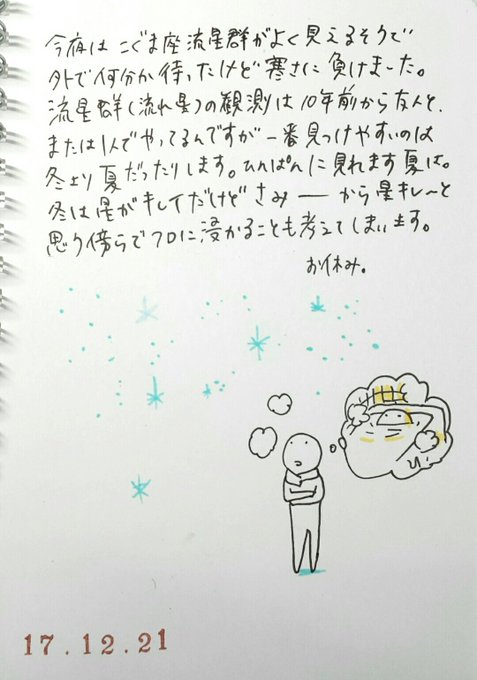 今夜は こぐま座流星群がよく見えるそうで
外で何分か待ったけど寒さに負けました。
流星群(流れ星)の観測は10年前から友人と、
または1人でやってるんですが一番見つけやすいのは
冬より夏だったりします。ひんぱんに見れます夏は。
冬は星がキレイだけどさみーーから星キレ〜と
思う傍らでフロに浸かることも考えてしまいます。
お休み。
17.12.21